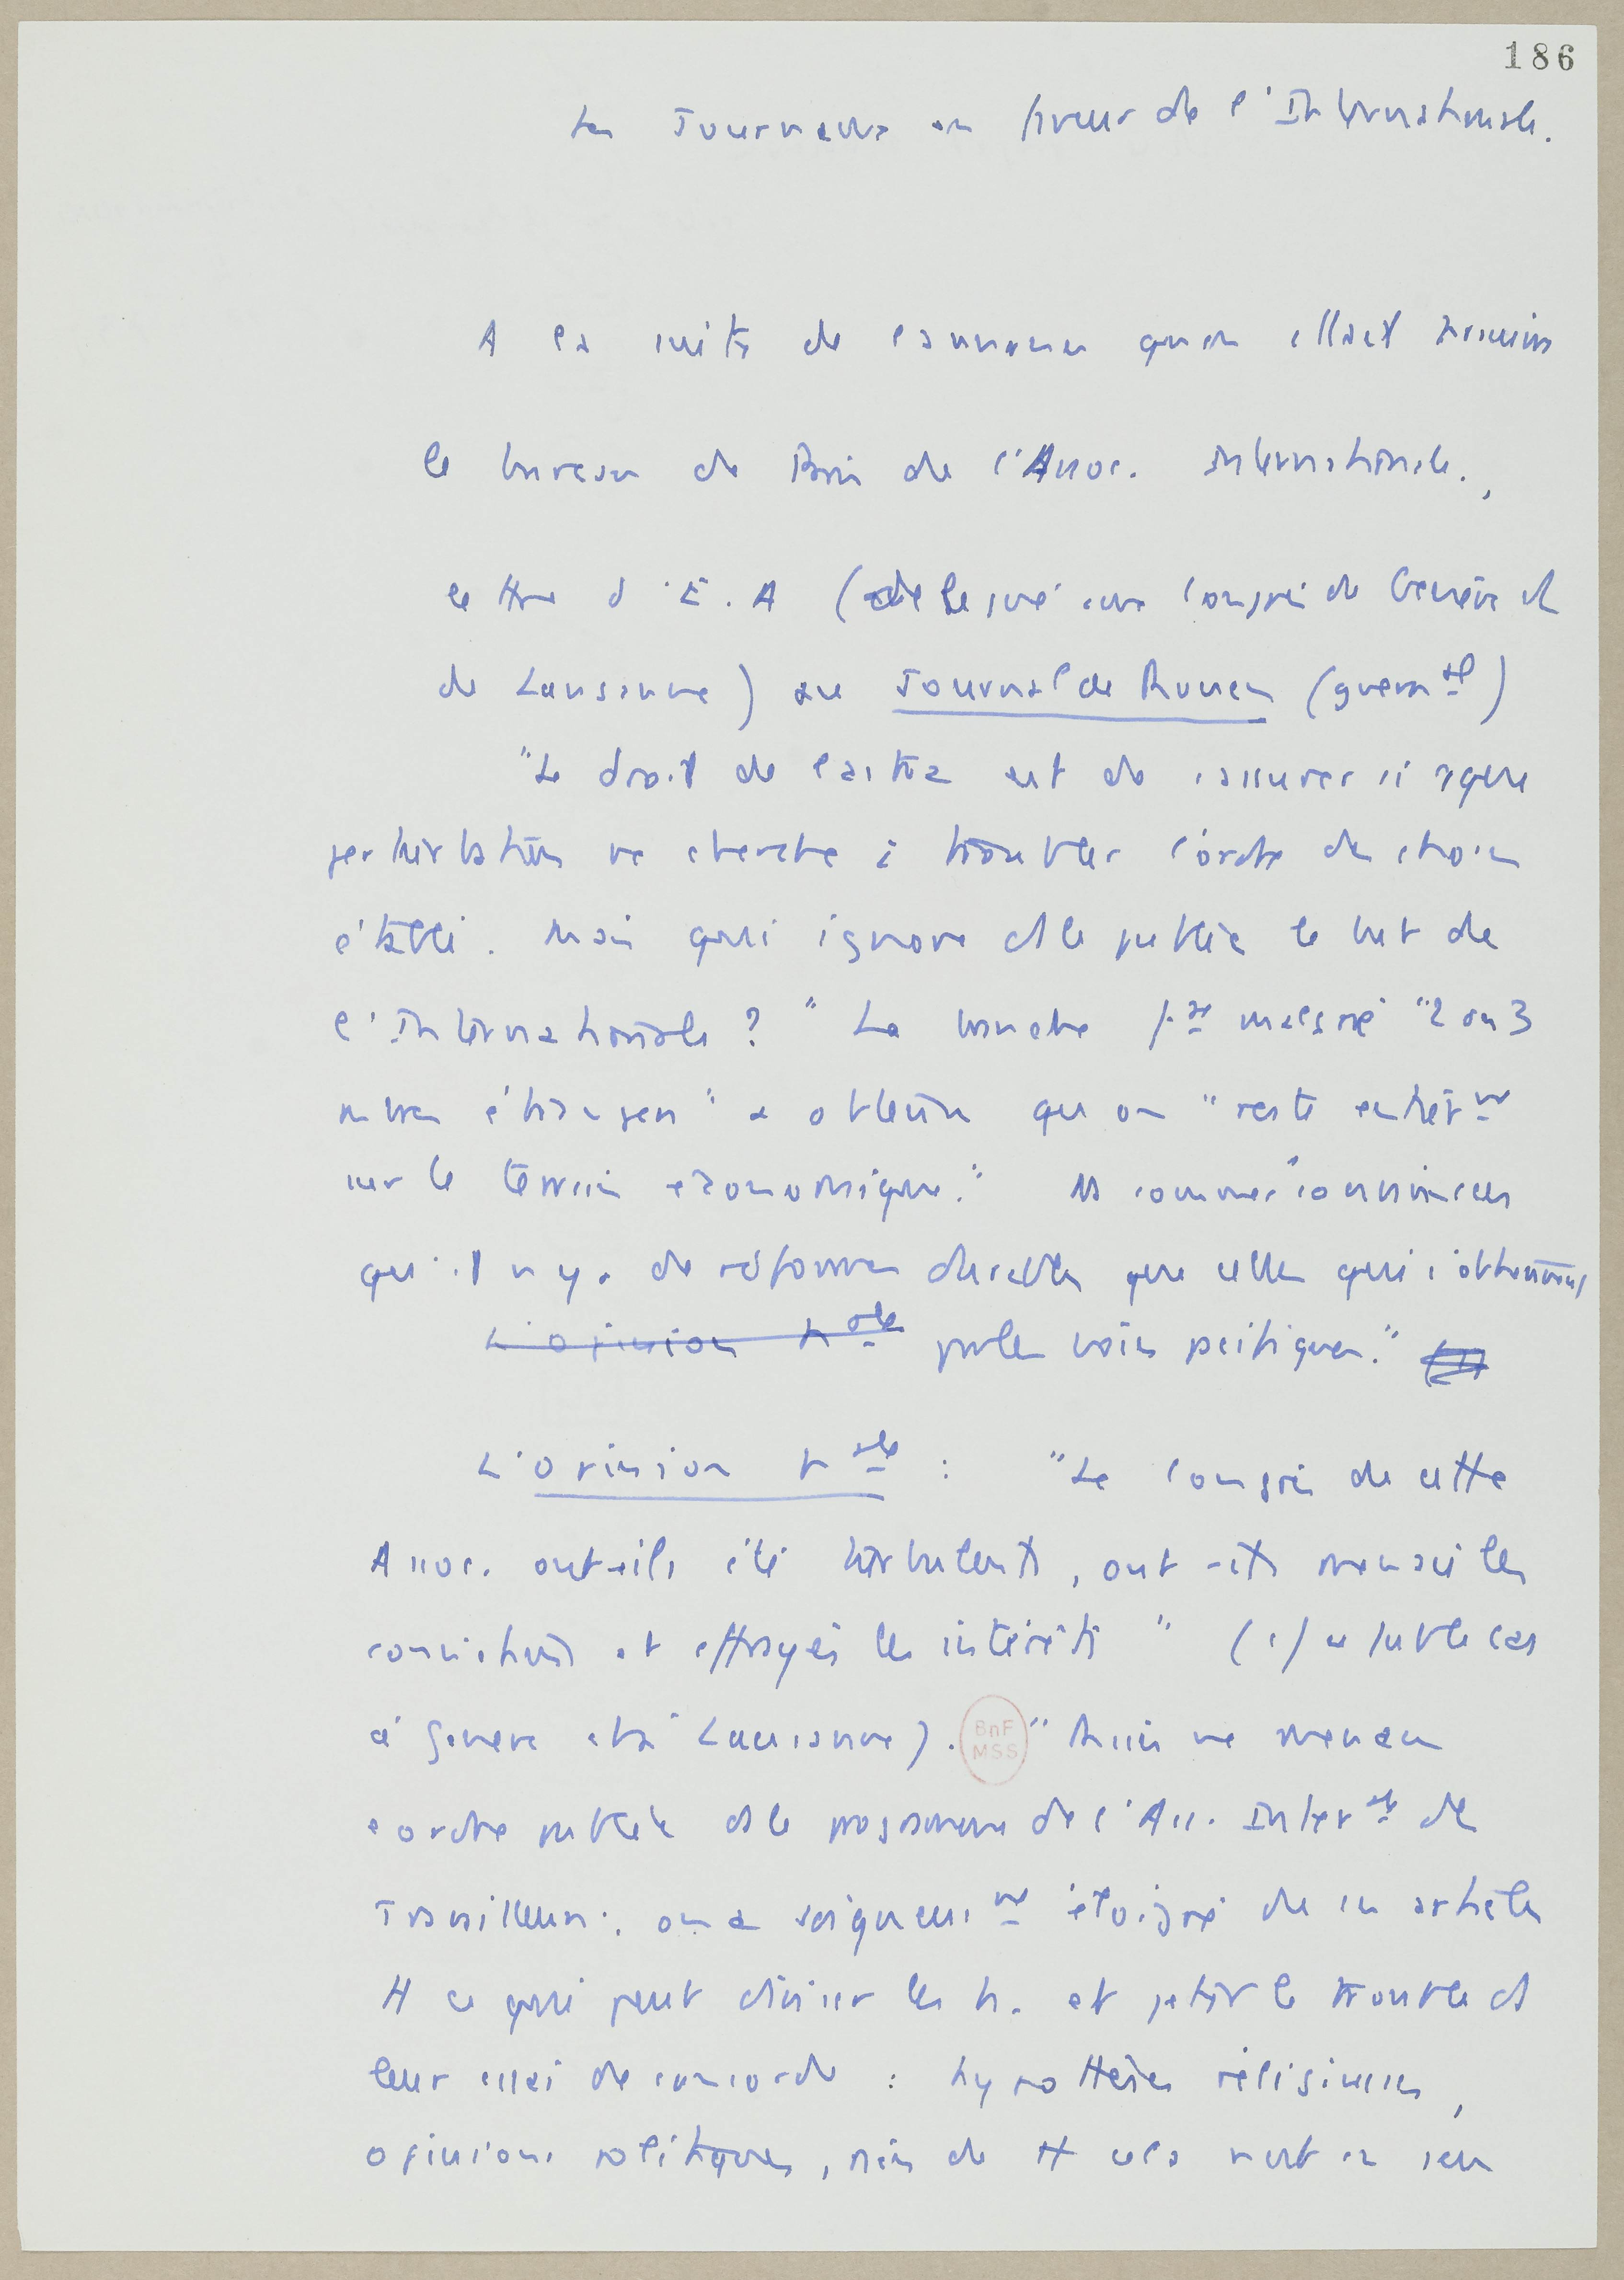 186
Les Journaux en faveur de l'Internationale.
A la suite de l'annonce qu'on allait
le bureau de Paris de l'Assoc. Internationale.,
lettre d'E. A (délégué aux Congrès de Genève et
de Lausanne) au Journal de Rouen (gvern^al)
"Le droit de l'autre est de s'assurer si aque
perturbation ne cherche à troubler l'ordre des choses
établi. Mais qui ignore ds le public le but de
l'Internationale ?" La branche f.se malgré "2 ou 3
autres étrangers" a obtenu qu'on "reste entièr^nt
sur le terrain économique." Ns sommes convaincus
qu'il n'y a de réformes durables que celles qui s'obtiennent
L'opinion N^ale par les voies pacifiques."
L'opinion N^ale : "Les Congrès de cette
Assoc. ont-ils été turbulents, ont-ils menacé les
convictions et effrayés les intérêts" (cf ce fut le cas
à Genève et à Lausanne). "Aussi ne menace
l'ordre public ds le programme de l'Ass. Inter^ale des
Travailleurs : on a soigneus^nt éloigné de ces articles
tt ce qui peut diviser les h. et jeter le trouble ds
leur essai de concorde : hypothèses religieuses,
opinions politiques, rien de tt cela n'est en jeu
BnF
MSS